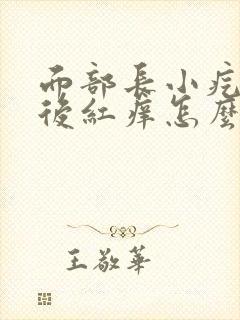 而部長小疙
後紅痒怎麼
王敬華